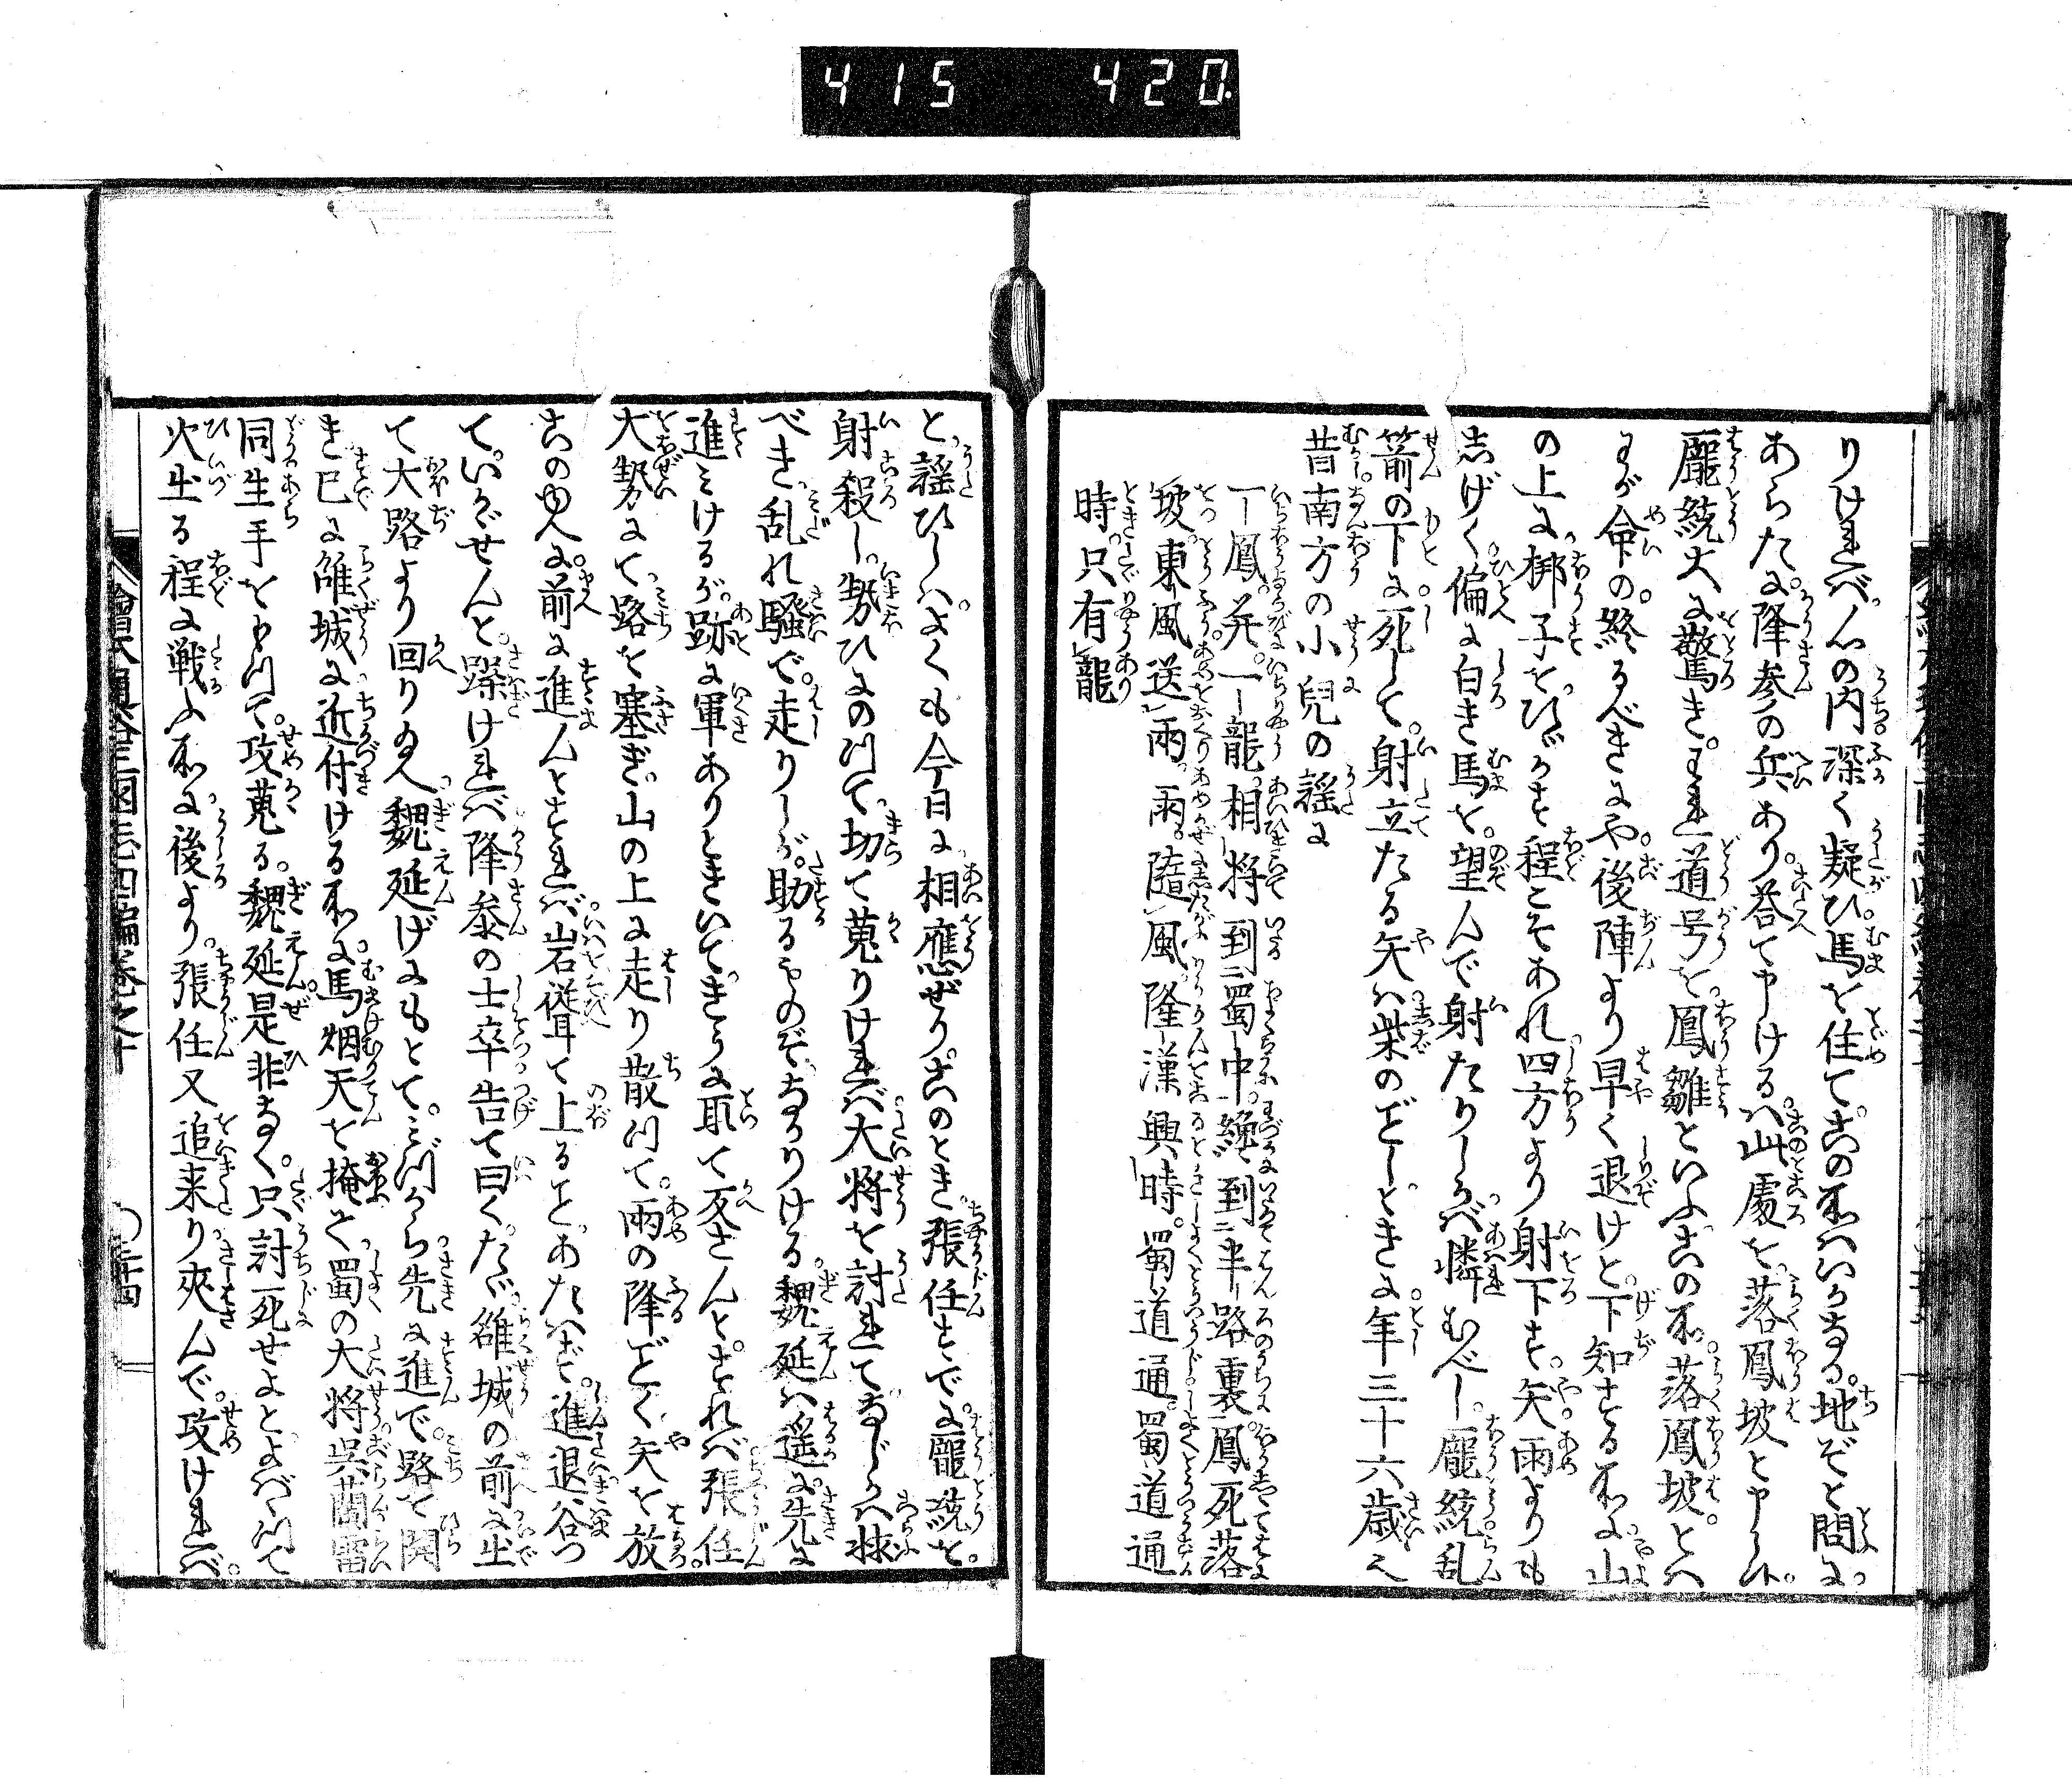 415 420
りければ心の内深く疑ひ馬を住てこの所ハいかなる地ぞと問に
あらたに降参の兵あり答て申けるハ此處を落鳳坡と申シ候
龐統大に驚きわれ道号を鳳雛といふこの所落鳳坡とハ
わが命の終るべきにや後陣より早く退けと下知する所に山
の上に梆子をひゞかす程こそあれ四方より射下す矢雨よりも
しげく偏に白き馬を望んで射たりしかバ憐むべし龐統乱
箭の下に死して射立たる矢ハ柴のごとしときに年三十六歳
昔南方の小兒の謡に
一鳳并一龍相將到蜀中纔到半路裏鳳死落
坡東風送雨雨隨風隆漢興時蜀道通蜀道通
時只有龍
と謡ひしハよくも今日に相應ぜりこのとき張任すでに龐統を
射殺し勢ひにのつて切て蒐りければ大將を討れてなじかハ
べき乱れ騒で走りしが助るものぞなかりける魏延ハ遥に先に
進ミけるが跡に軍ありときいてきうに取て返さんとすれバ張任
大勢にて路を塞ぎ山の上に走り散つて雨の降ごとく矢を放
このゆへに前に進んとすれバ岩聳て上ることあたハず進退谷つ
ていかゞせんと躁ければ降参の士卒告て曰くたゞ雒城の前に出
て大路より回り玉へ魏延げにもとてミづから先に進で路を開
き已に雒城に近付ける所に馬烟天を掩て蜀の大將呉蘭雷
同生手をわつて攻蒐る魏延是非なく只討死せよとよばゝつて
火出る程に戦ふ所に後より張任又追来り夾んで攻ければ
繪本通俗三國志四編巻之十